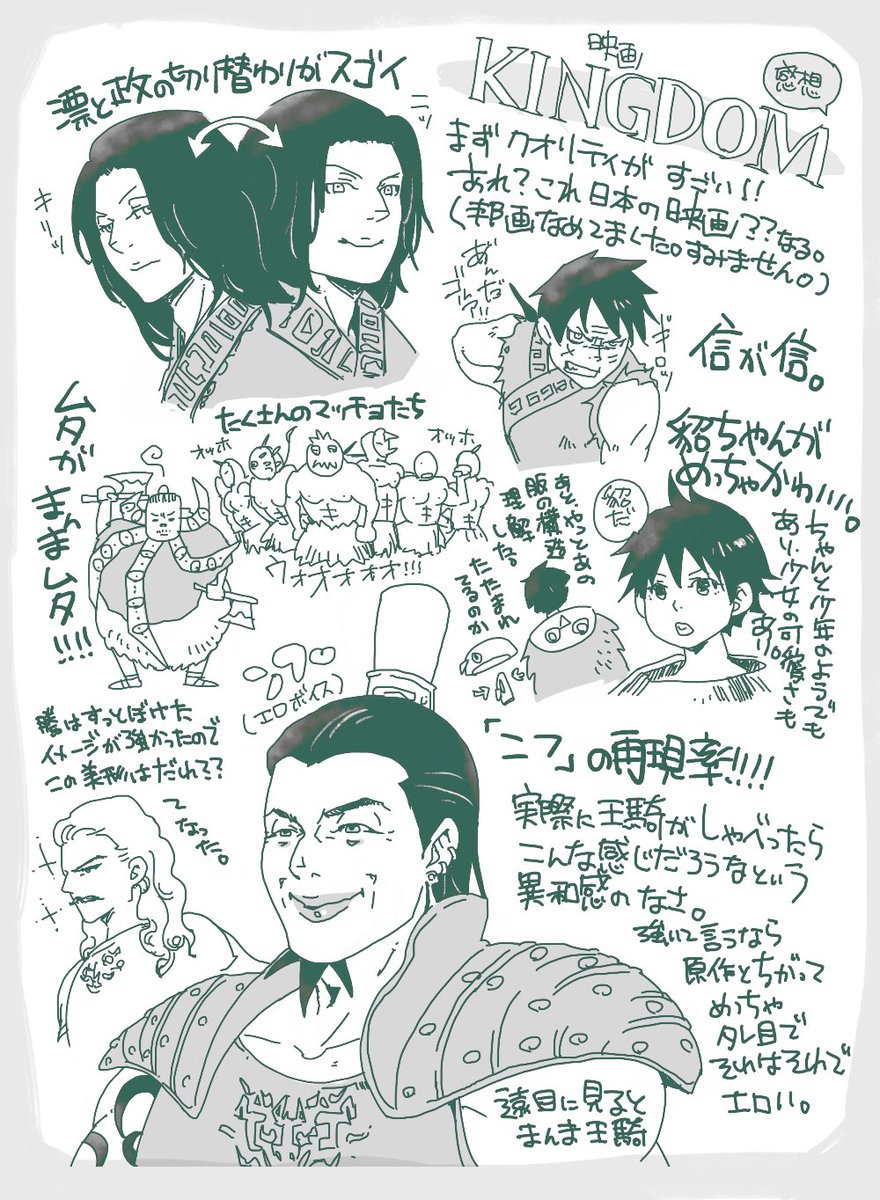 映画
KINGDOM
感想
まず クオリティが すごい!!
あれ?これ日本の映画??なる。
(邦画なめてました。すみません。)
漂と政の切り替わりがスゴイ
ニッ
キリッ
あぁん
だ
ゴルァ!!
ギロッ
信が信。
たくさんのマッチョたち
オッホ
オッホ
ウオオオオオ!!!
ムタが
まんまムタ!!!!
貂ちゃんが
めっちゃかわいい。
貂だ
ちゃんと少年のようでも
あり、少女の可愛さも
あり。
あと、やっとあの
服の構造
理解
した。
たたまれ
てるのか
騰はすっとぼけた
イメージが強かったので
この美形はだれ??
てなった。
(エロボイス)
「ンフ」の再現率!!!!
実際に王騎がしゃべったら
こんな感じだろうなという
異和感のなさ。
強いて言うなら
原作とちがって
めっちゃ
タレ目で
それはそれで
エロい。
遠目に見ると
まんま王騎